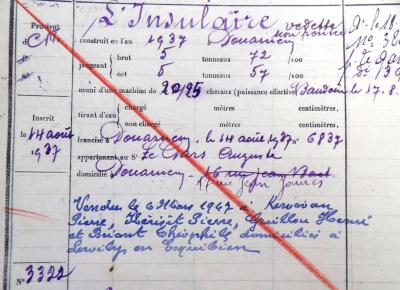 Provient
de
L'Insulaire vedette
non pontée
construit en l'an 1937 Douarnenez
jaugeant brut 5 tonneaux 72 /100
net 5 tonneaux 57 /100
muni d'une machine de 20/25 chevaux (puissance effective) Baudouin
tirant d'eau chargé mètres centimètres,
non chargé mètres centimètres,
Inscrit
le
14 août
1937
francisé à Douarnenez, le 14 août 1937 n° 6837
appartenant au Sr Le Pars Auguste
domicilié à Douarnenez - 16 rue Jean Bart
17 rue Jean Jaurès
Vendu le 6 Mars 1947 à
Pierre, Pierre, Guillou Henri
et Briant Théophile, domiciliés à
Lervily en Esquibien
N°
3322